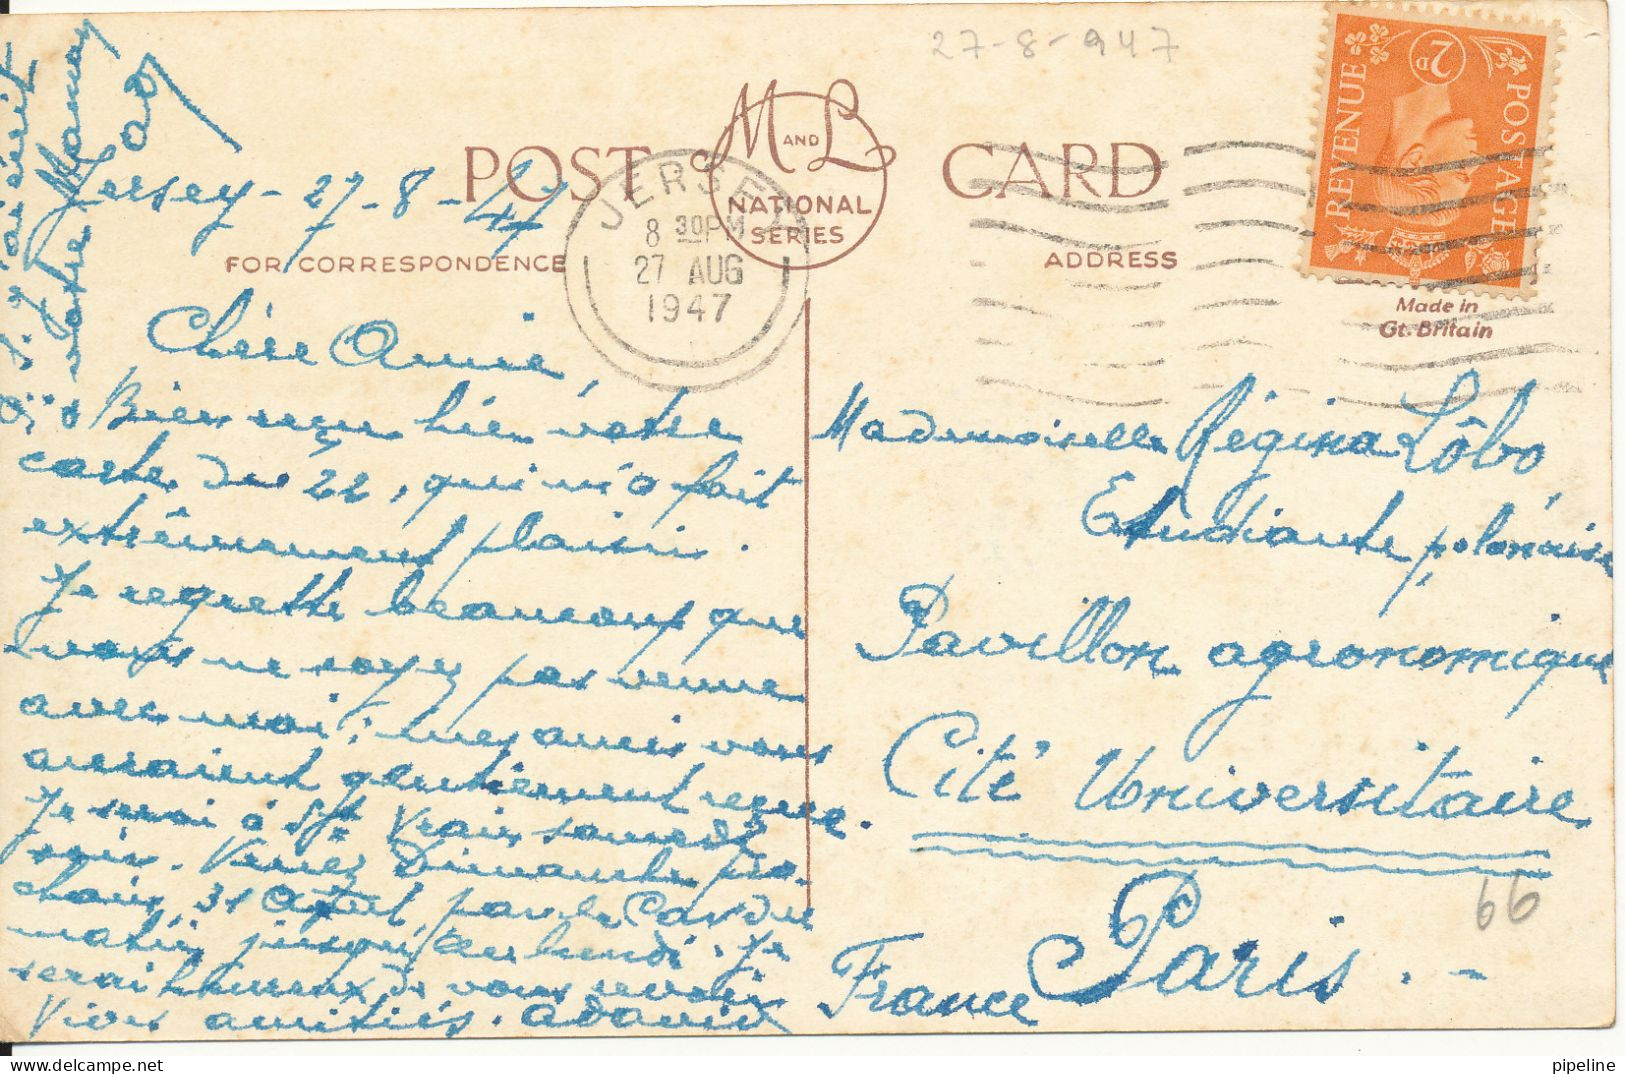 27-8-947
POST CARD
M AND L
NATIONAL
SERIES
FOR CORRESPONDENCE
ADDRESS
POSTAGE
REVENUE
2D
Made in
Gt. Britain
JERSEY
8 30PM
27 AUG
1947
Jersey - 27-8-47
Chère Amie,
Bien reçu hier votre
carte du 22, qui m'a fait
extrêmement plaisir.
Je regrette beaucoup que
vous ne soyez pas venue
avec moi; mes amis vous
auraient gentiment reçue.
Je serai à St Vrain samedi
soir. Venez Dimanche pro-
chain, 31 Août, par le Car du
matin jusqu'au lundi. Je
serai heureux de vous revoir
Vives amitiés.
J'ai écrit
à votre Maman
Mademoiselle Régina Lôbo,
Etudiante polonaise
Pavillon agronomique
Cité Universitaire
Paris. -
France
66
pipeline